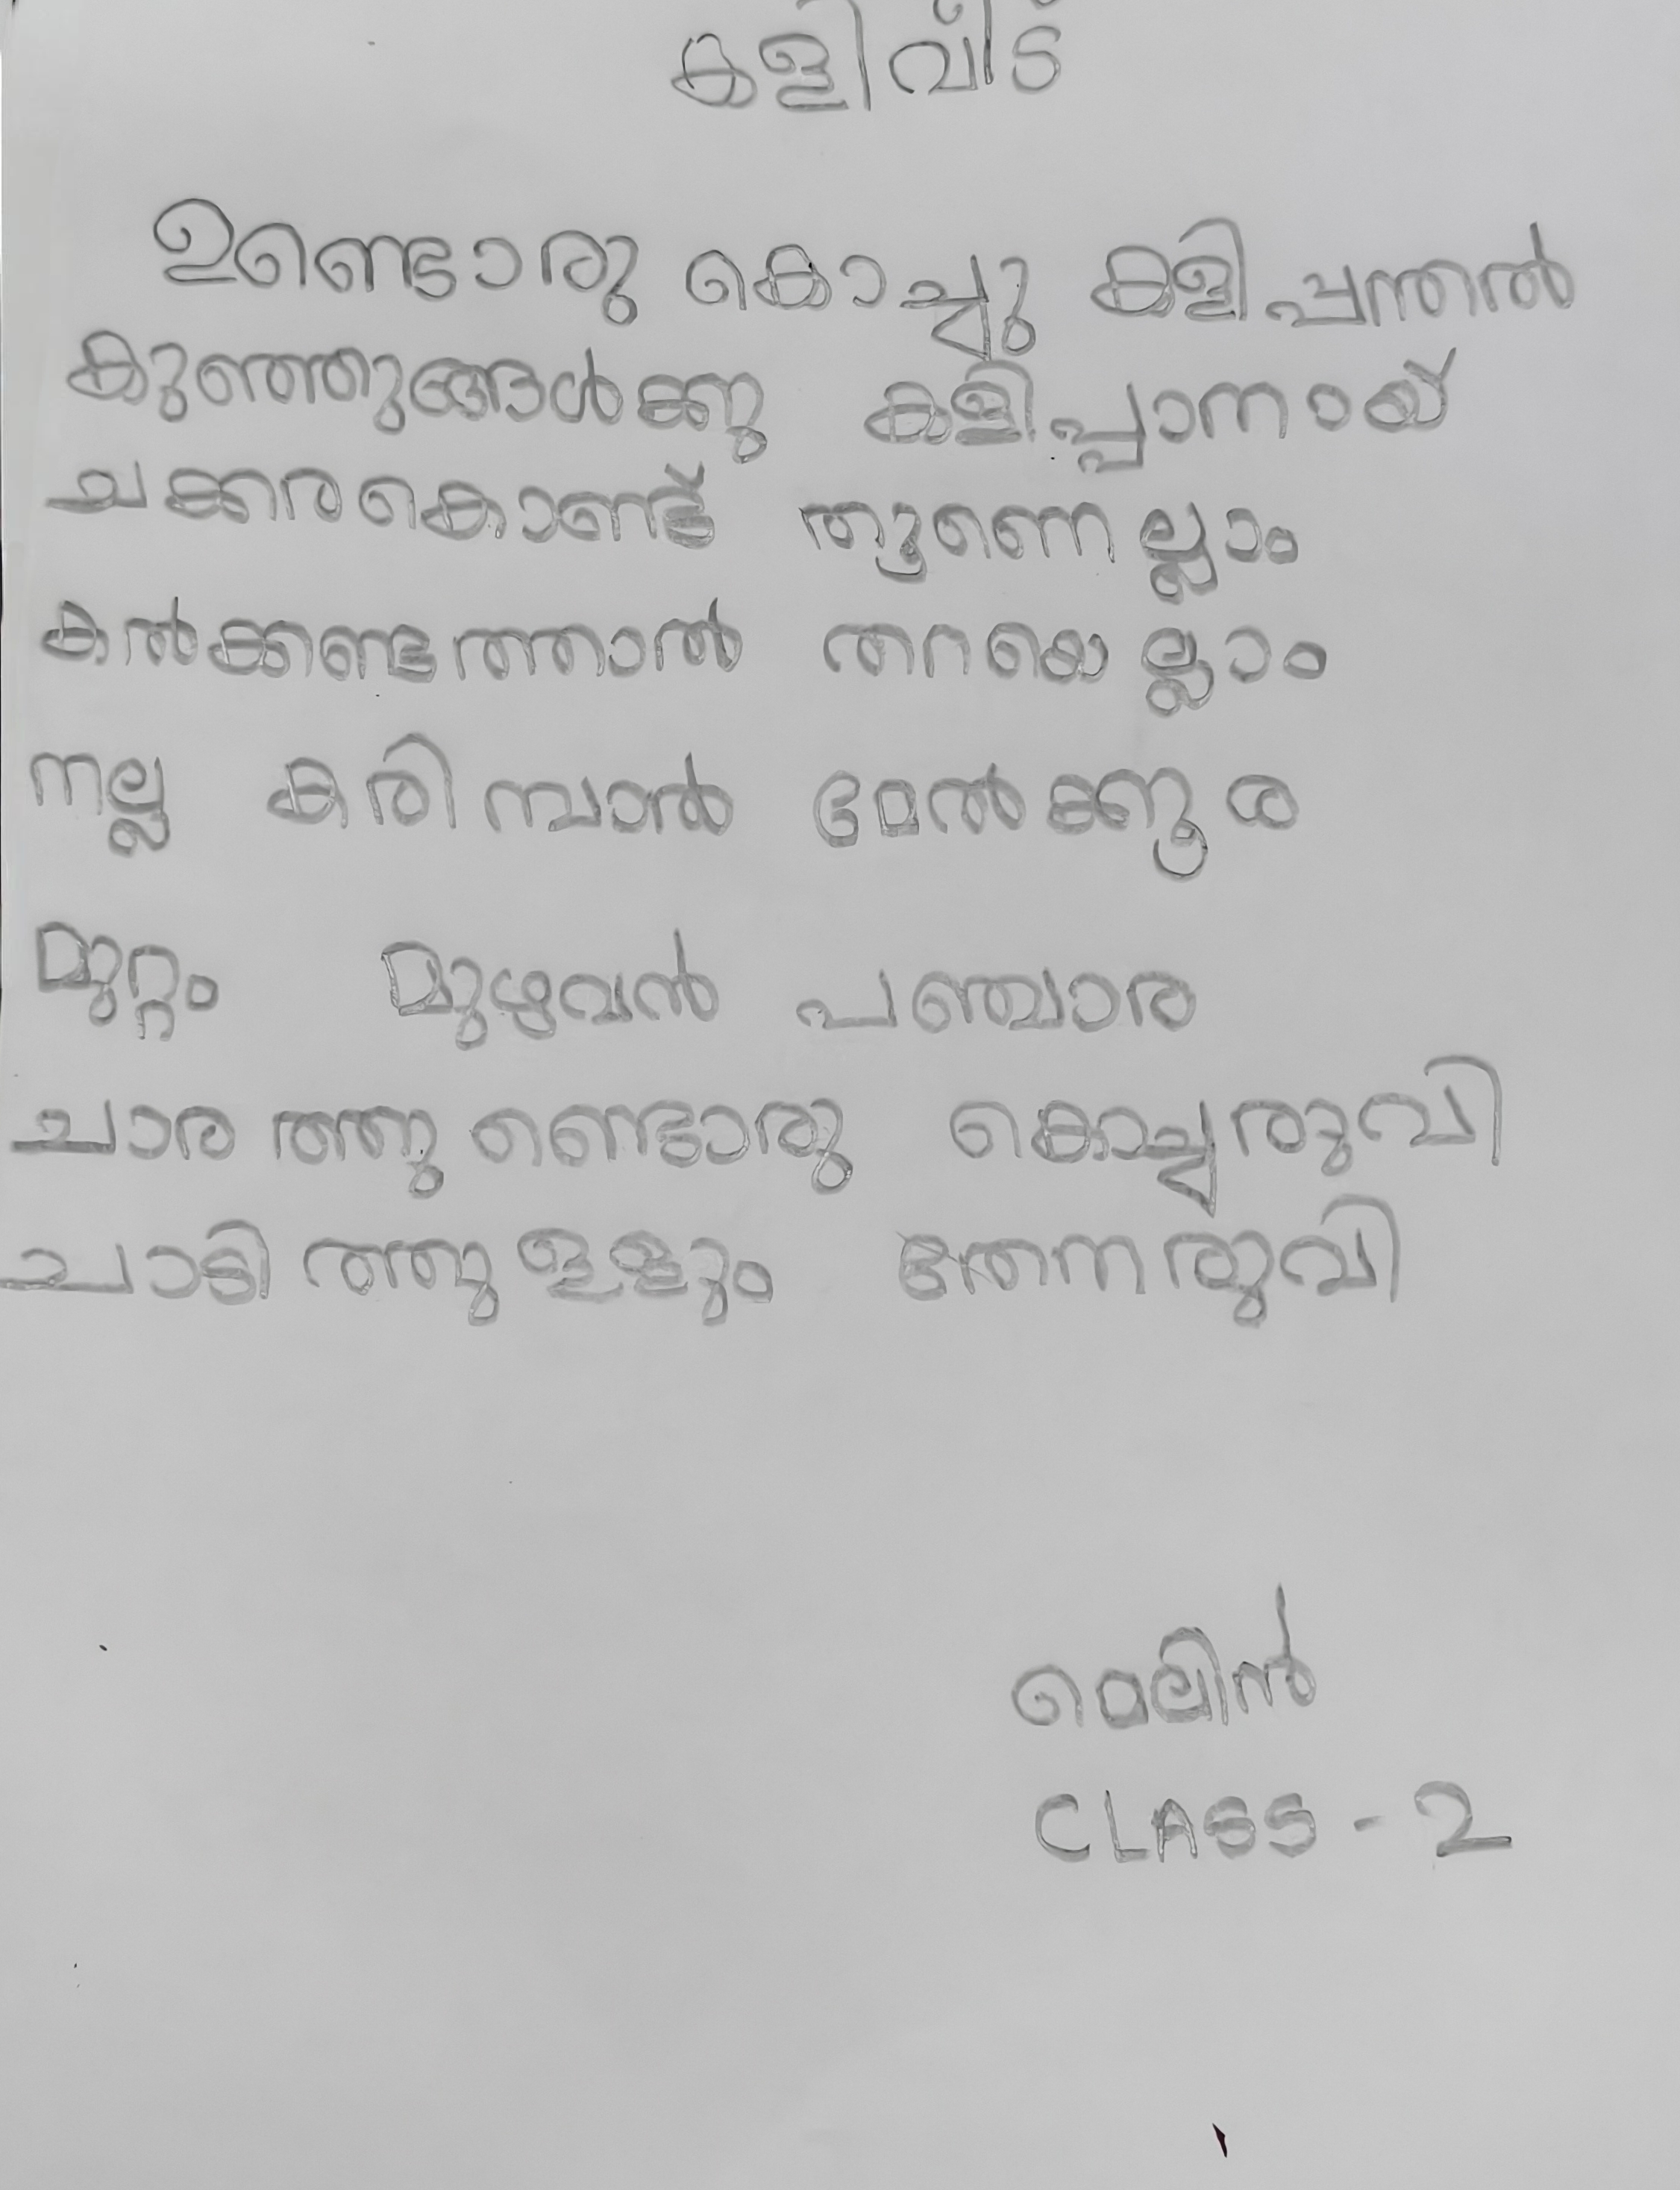 കളിവീട്
ഉണ്ടൊരു കൊച്ചു കളിപ്പന്തൽ
കുഞ്ഞുങ്ങൾക്കു കളിപ്പാനായ്
ചക്കരകൊണ്ട് തൂണെല്ലാം
കൽക്കണ്ടത്താൽ തറയെല്ലാം
നല്ല കരിമ്പാൽ മേൽക്കൂര
മുറ്റം മുഴുവൻ പഞ്ചാര
ചാരത്തുണ്ടൊരു കൊച്ചരുവി
ചാടിത്തുളളും തേനരുവി
മെലിൻ
CLASS - 2